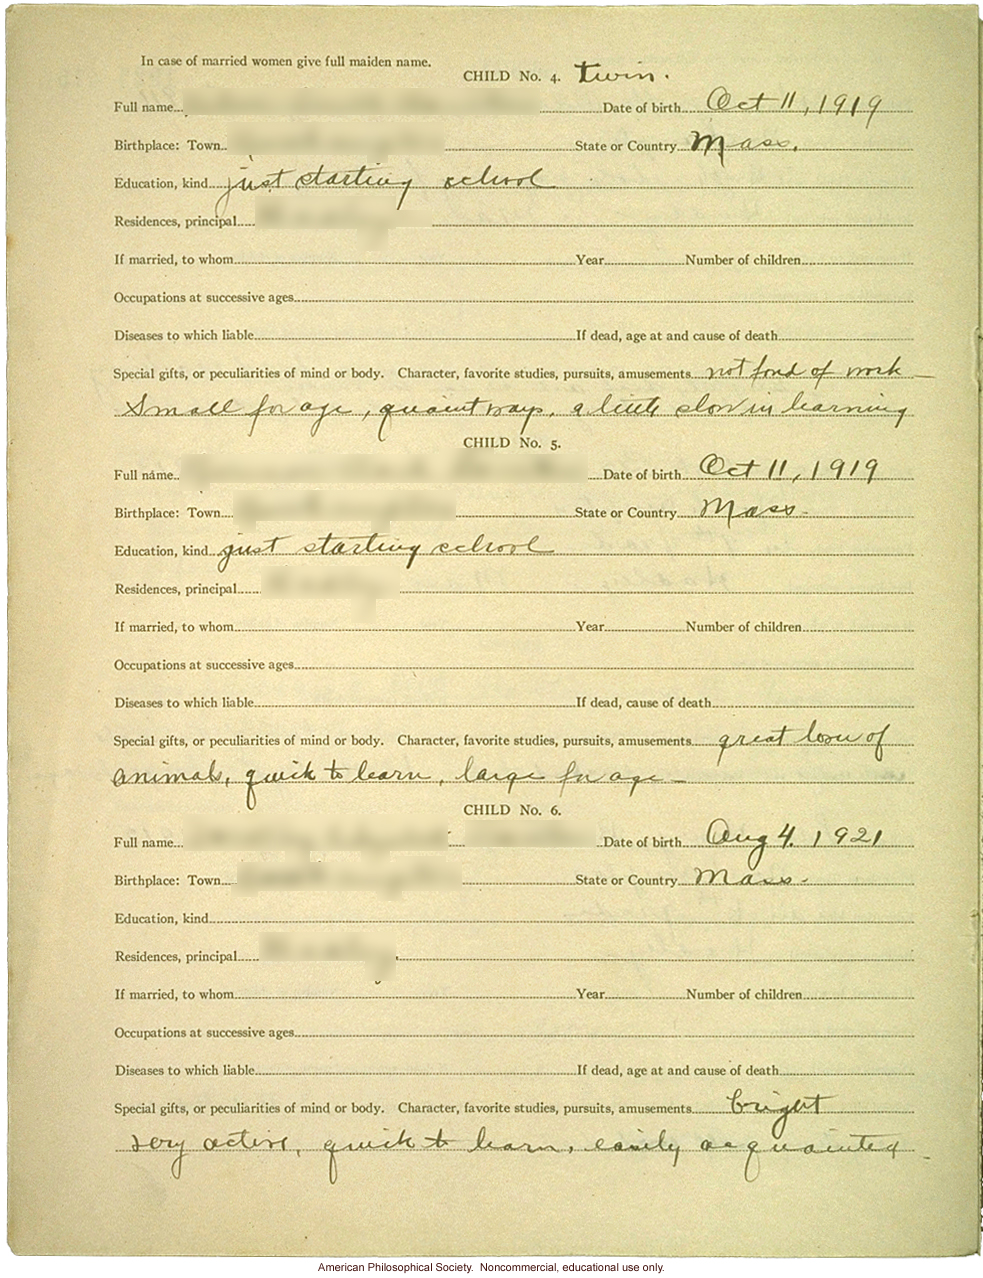 In case of married women give full maiden name.
CHILD No. 4. Twin.
Full name... Date of birth... Oct 11, 1919
Birthplace: Town... State or Country... Mass.
Education, kind... just starting school
Residences, principal...
If married, to whom... Year... Number of children...
Occupations at successive ages...
Diseases to which liable... If dead, age at and cause of death...
Special gifts, or peculiarities of mind or body. Character, favorite studies, pursuits, amusements... not fond of work –
Small for age, quaint ways, a little slow in learning
CHILD No. 5.
Full name... Date of birth... Oct 11, 1919
Birthplace: Town... State or Country... Mass.
Education, kind... just starting school
Residences, principal...
If married, to whom... Year... Number of children...
Occupations at successive ages...
Diseases to which liable... If dead, cause of death...
Special gifts, or peculiarities of mind or body. Character, favorite studies, pursuits, amusements... great lover of
animals, quick to learn, large for age –
CHILD No. 6.
Full name... Date of birth... Aug 4, 1921
Birthplace: Town... State or Country... Mass.
Education, kind...
Residences, principal...
If married, to whom... Year... Number of children...
Occupations at successive ages...
Diseases to which liable... If dead, age at and cause of death...
Special gifts, or peculiarities of mind or body. Character, favorite studies, pursuits, amusements... bright
very active, quick to learn, easily acquainted –
American Philosophical Society. Noncommercial, educational use only.